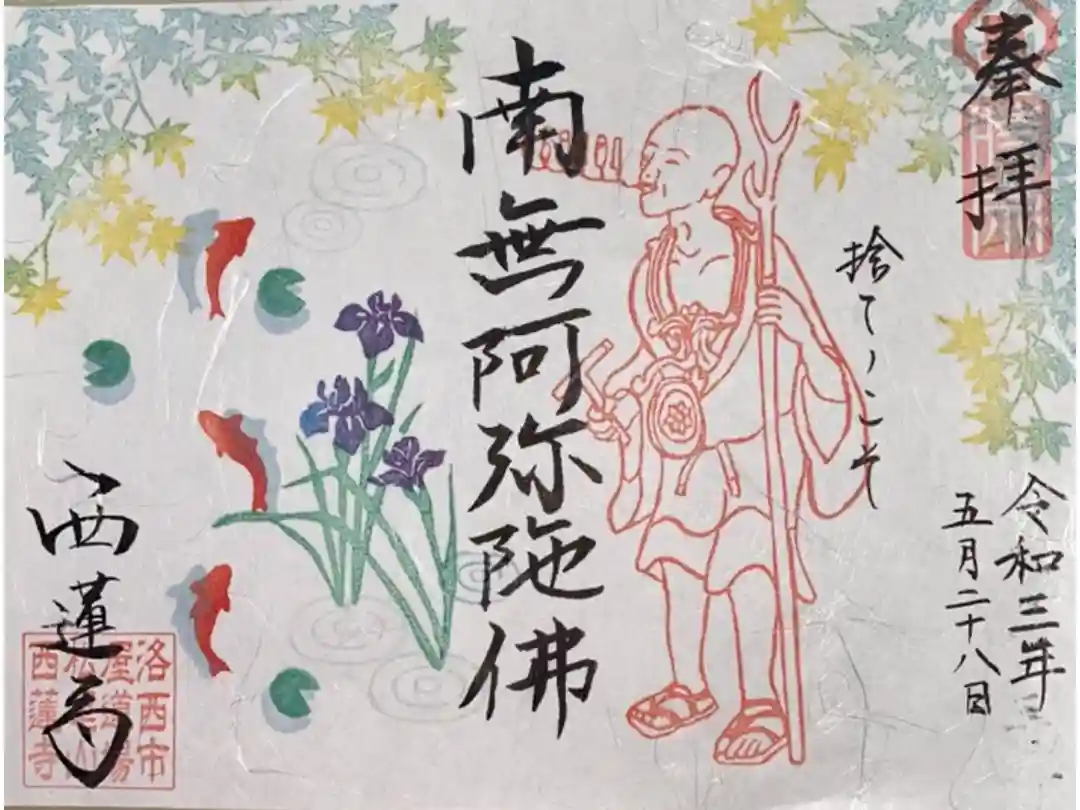 奉拝
令和三年
五月二十八日
捨てゝこそ
南無阿弥陀佛
西蓮寺
洛西市
屋道場
西蓮寺